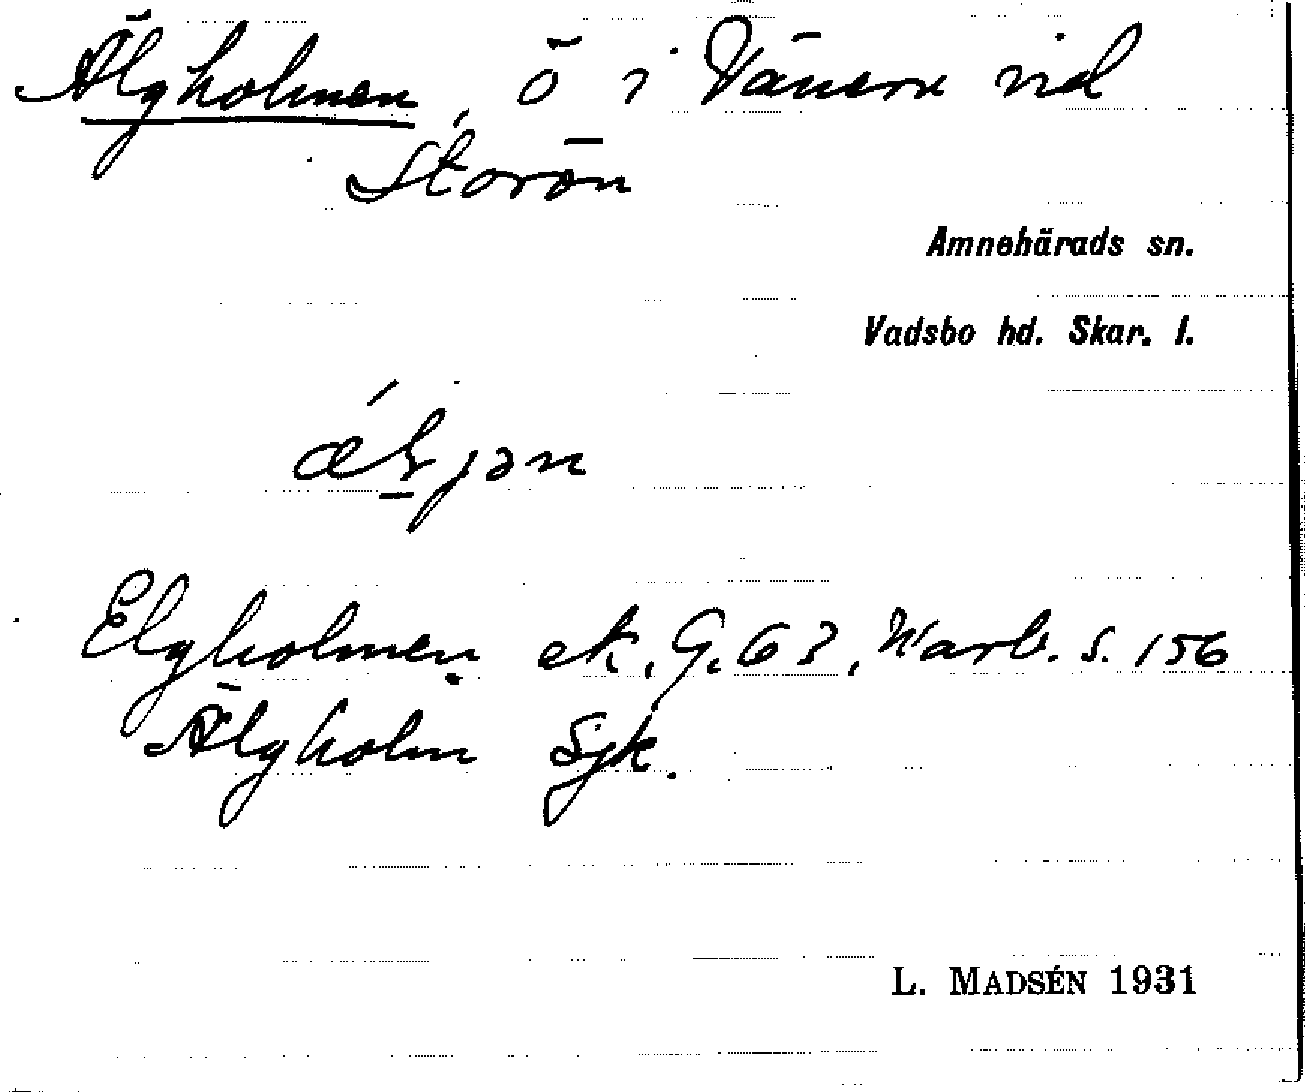 Älgholmen, ö i Vänern vid
Storön
Amnehärads sn.
Vadsbo hd. Skar. l.
Elgholmen ek. G. 63, Warb. s. 156
Älgholm Sjk.
L. MADSÉN 1931